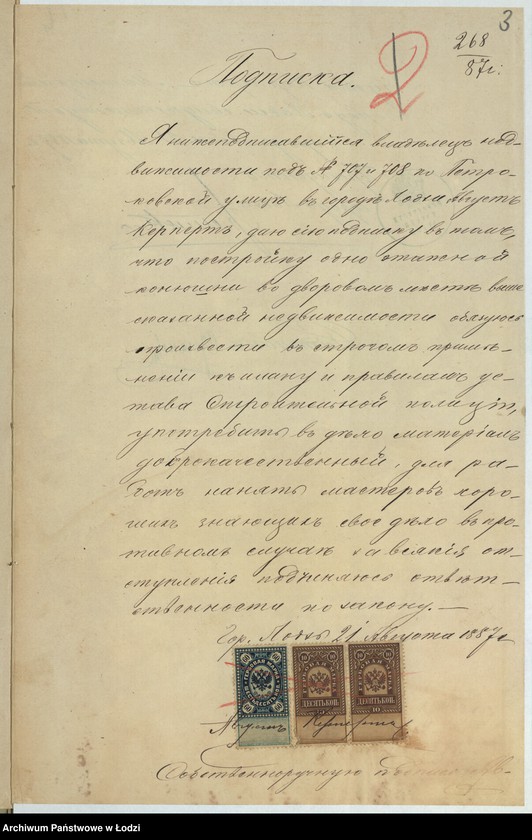 3
268
87г.
2
Подписка.
Я нижеподписавшійся владѣлецъ нед-
вижимости подъ № 707 и 708 по Петро-
ковской улицѣ въ городѣ Лодзи Августъ
Кερпертъ, даю сію подписку въ томъ,
что постройку одно этажной
конюшни во дворовомъ мѣстѣ выше
сказанной недвижимости обязуюсь
произвести въ строгомъ примѣ-
неніи къ плану и правиламъ ус-
тава Строительной полиціи,
употребить въ дѣло матеріалъ
доброкачественный, для ра-
ботъ нанять мастеровъ хоро-
шихъ знающихъ свое дѣло въ про-
тивномъ случаѣ за всякія от-
ступленія подчиняюсь отвѣт-
ственности по закону.—
Гор. Лодзь 21 Августа 1887г
60 60
ГЕРБОВАЯ МАРКА
60 60
10 10
ГЕРБОВАЯ
ДЕСЯТЬ КОП.
10
10 10
ГЕРБОВАЯ
ДЕСЯТЬ КОП.
10
Августъ
Собственноручную подпись
Archiwum Państwowe w Łodzi